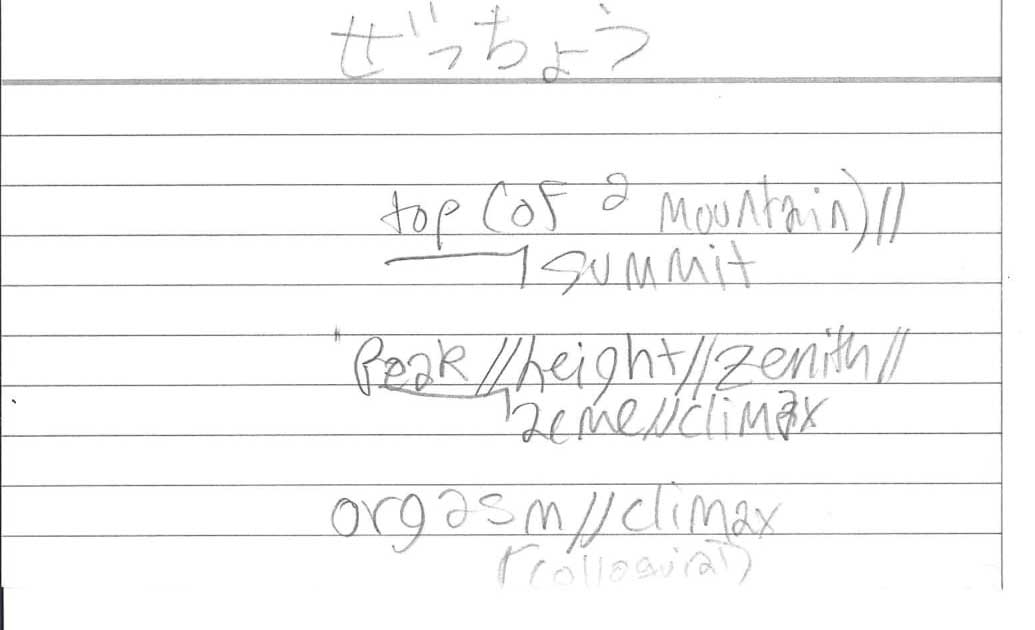 ぜっちょう
top (of a mountain)//
summit
Peak//height//zenith//
acme//climax
orgasm//climax
(colloquial)